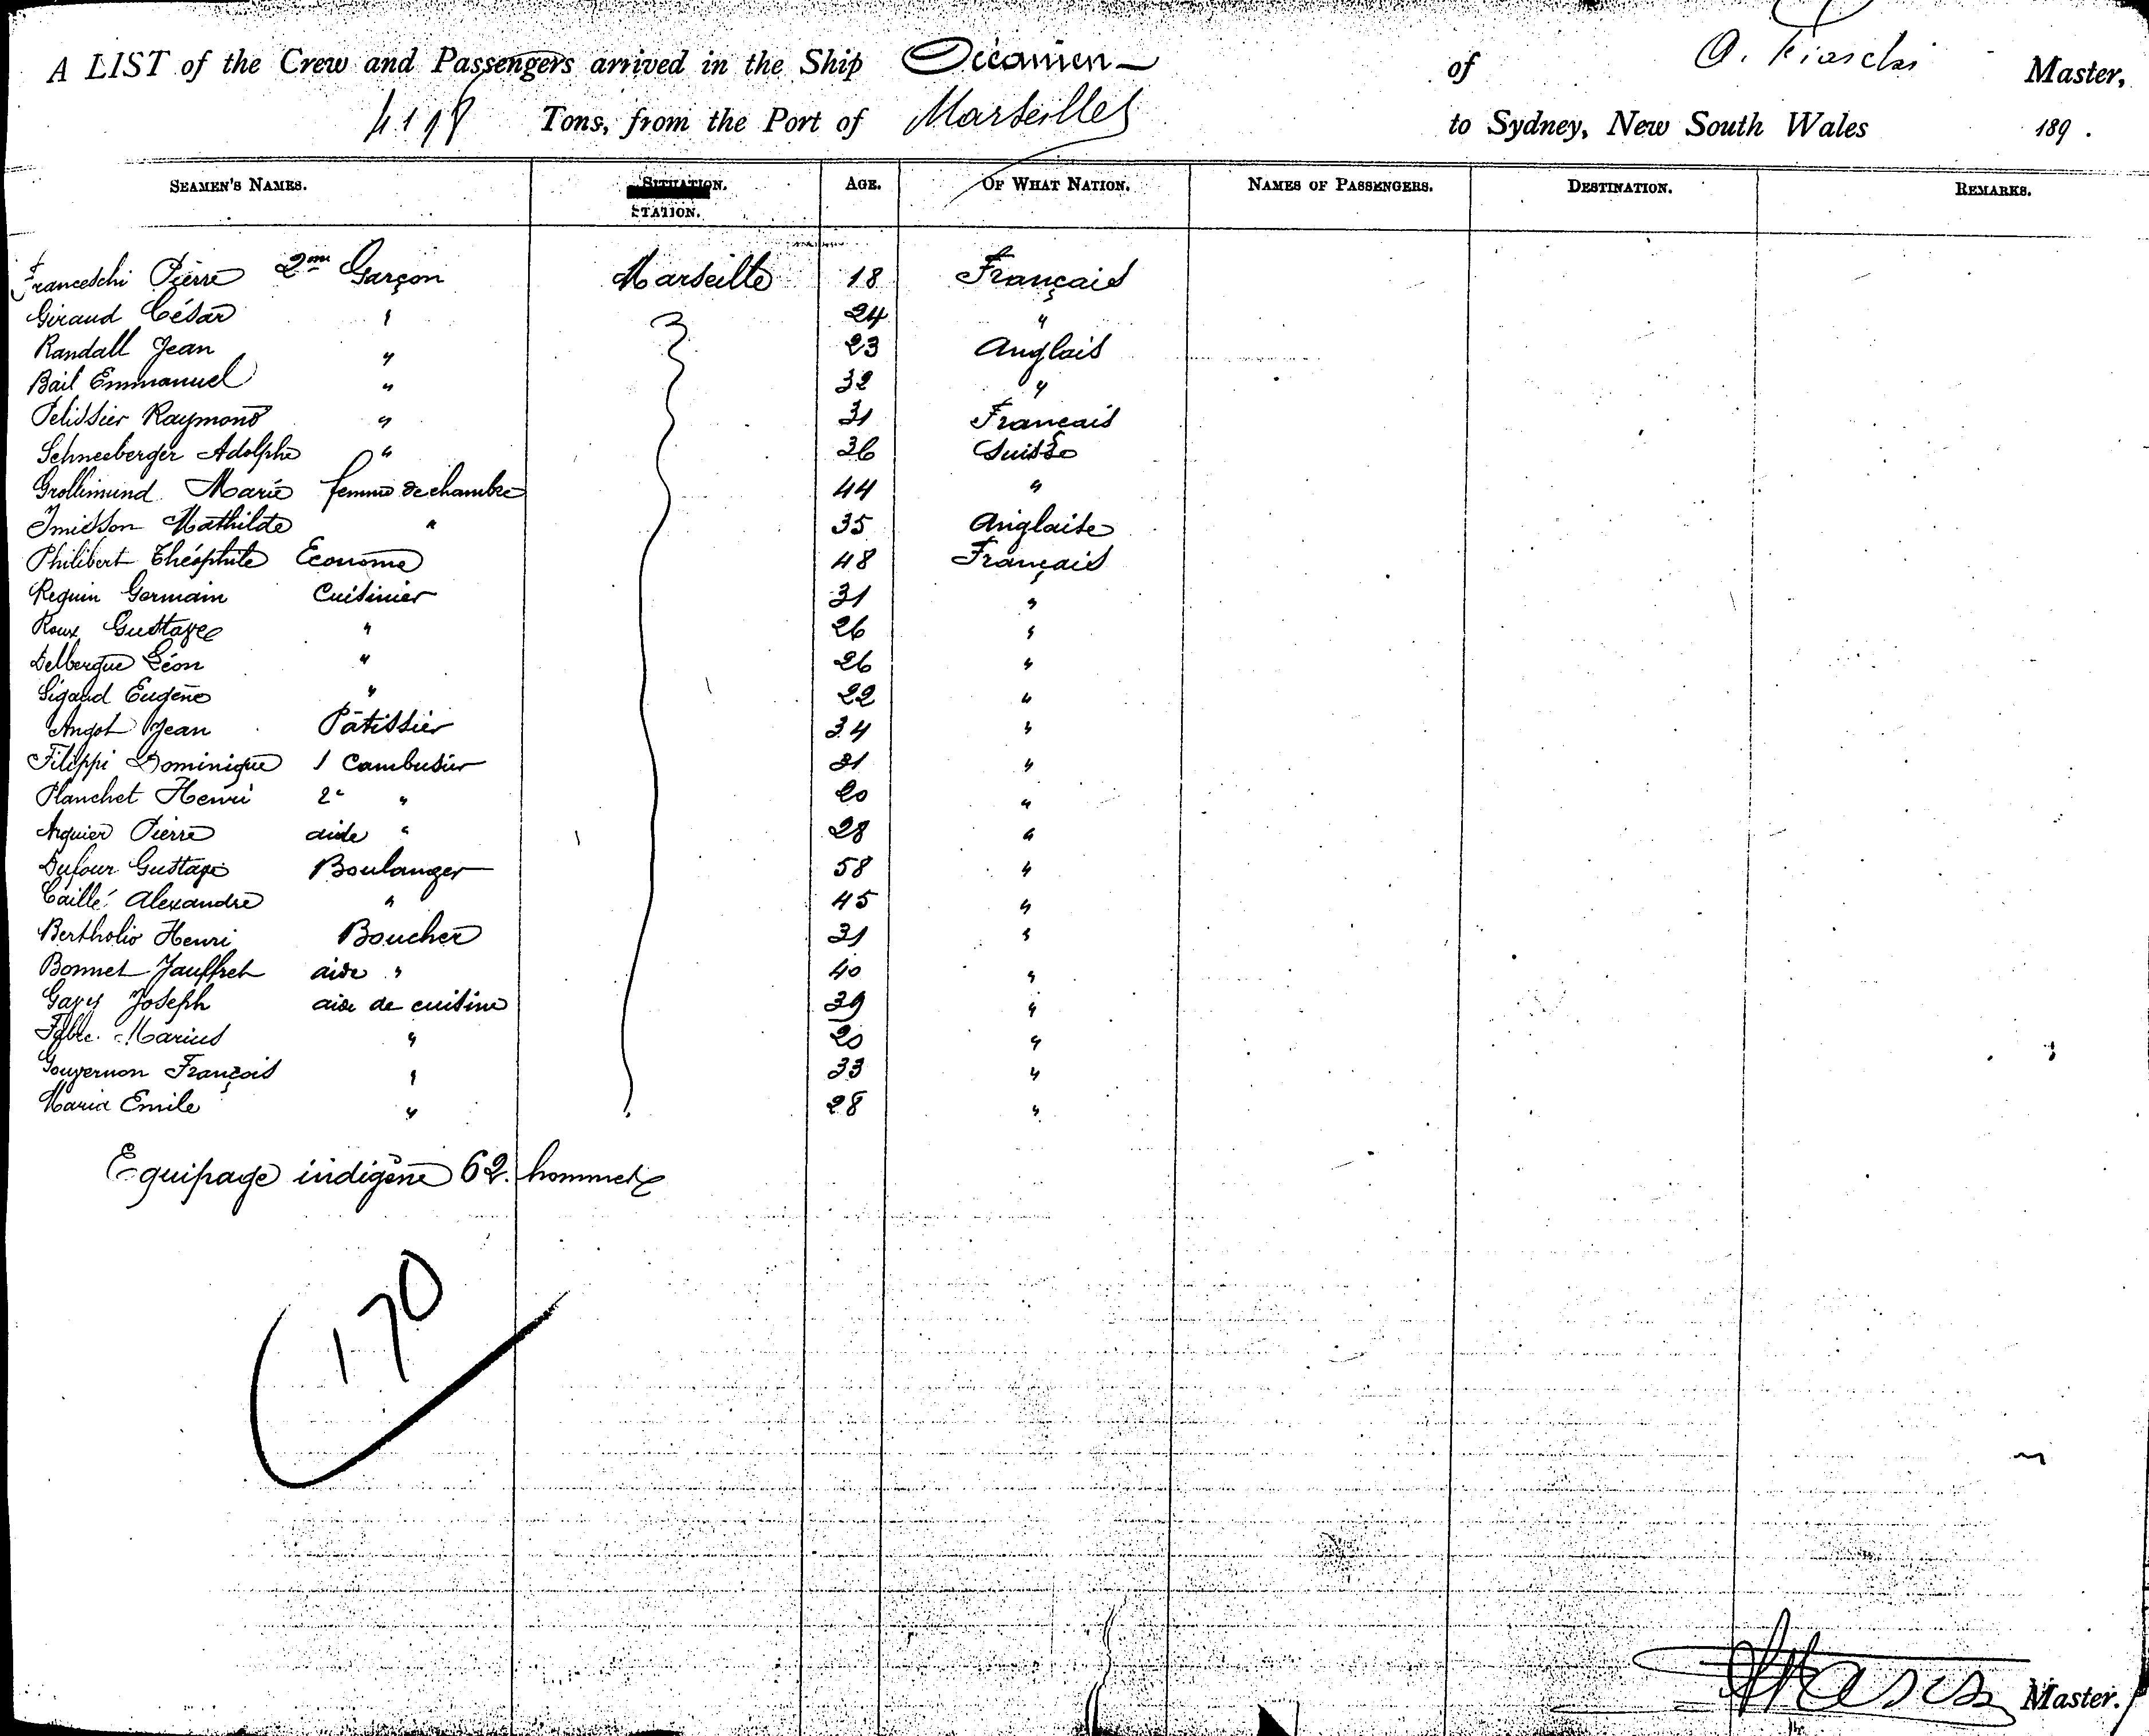 A LIST of the Crew and Passengers arrived in the Ship Océanien of Master,
Tons, from the Port of Marseilles to Sydney, New South Wales 189 .
SEAMEN'S NAMES. SITUATION. STATION. AGE. OF WHAT NATION. NAMES OF PASSENGERS. DESTINATION. REMARKS.
Franceschi Pierre 2me Garçon Marseille 18 Français
Giraud César " 24 "
Randall Jean " 23 Anglais
Bail Emmanuel " 32 "
Pelissier Raymond " 31 Francais
Schneeberger Adolphe " 36 Suisse
Grollimund Marie femme de chambre 44 "
Mathilde " 35 Anglaise
Philibert Théophile Econome 48 Français
Requin Germain Cuisinier 31 "
Roux Gustave " 26 "
Delbergue Léon " 26 "
Sigaud Eugène " 22 "
Angot Jean Pâtissier 34 "
Filippi Dominique 1 Cambusier 31 "
Planchet Henri 2e " 20 "
Arquier Pierre aide " 28 "
Dufour Gustave Boulanger 58 "
Caillé Alexandre " 45 "
Bertholio Henri Boucher 31 "
Bonnet Jauffret aide " 40 "
Gavy Joseph aide de cuisine 39 "
Fabre Marius " 20 "
Gouvernon François " 33 "
Maria Emile " 28 "
Equipage indigène 62 hommes
170
Master.